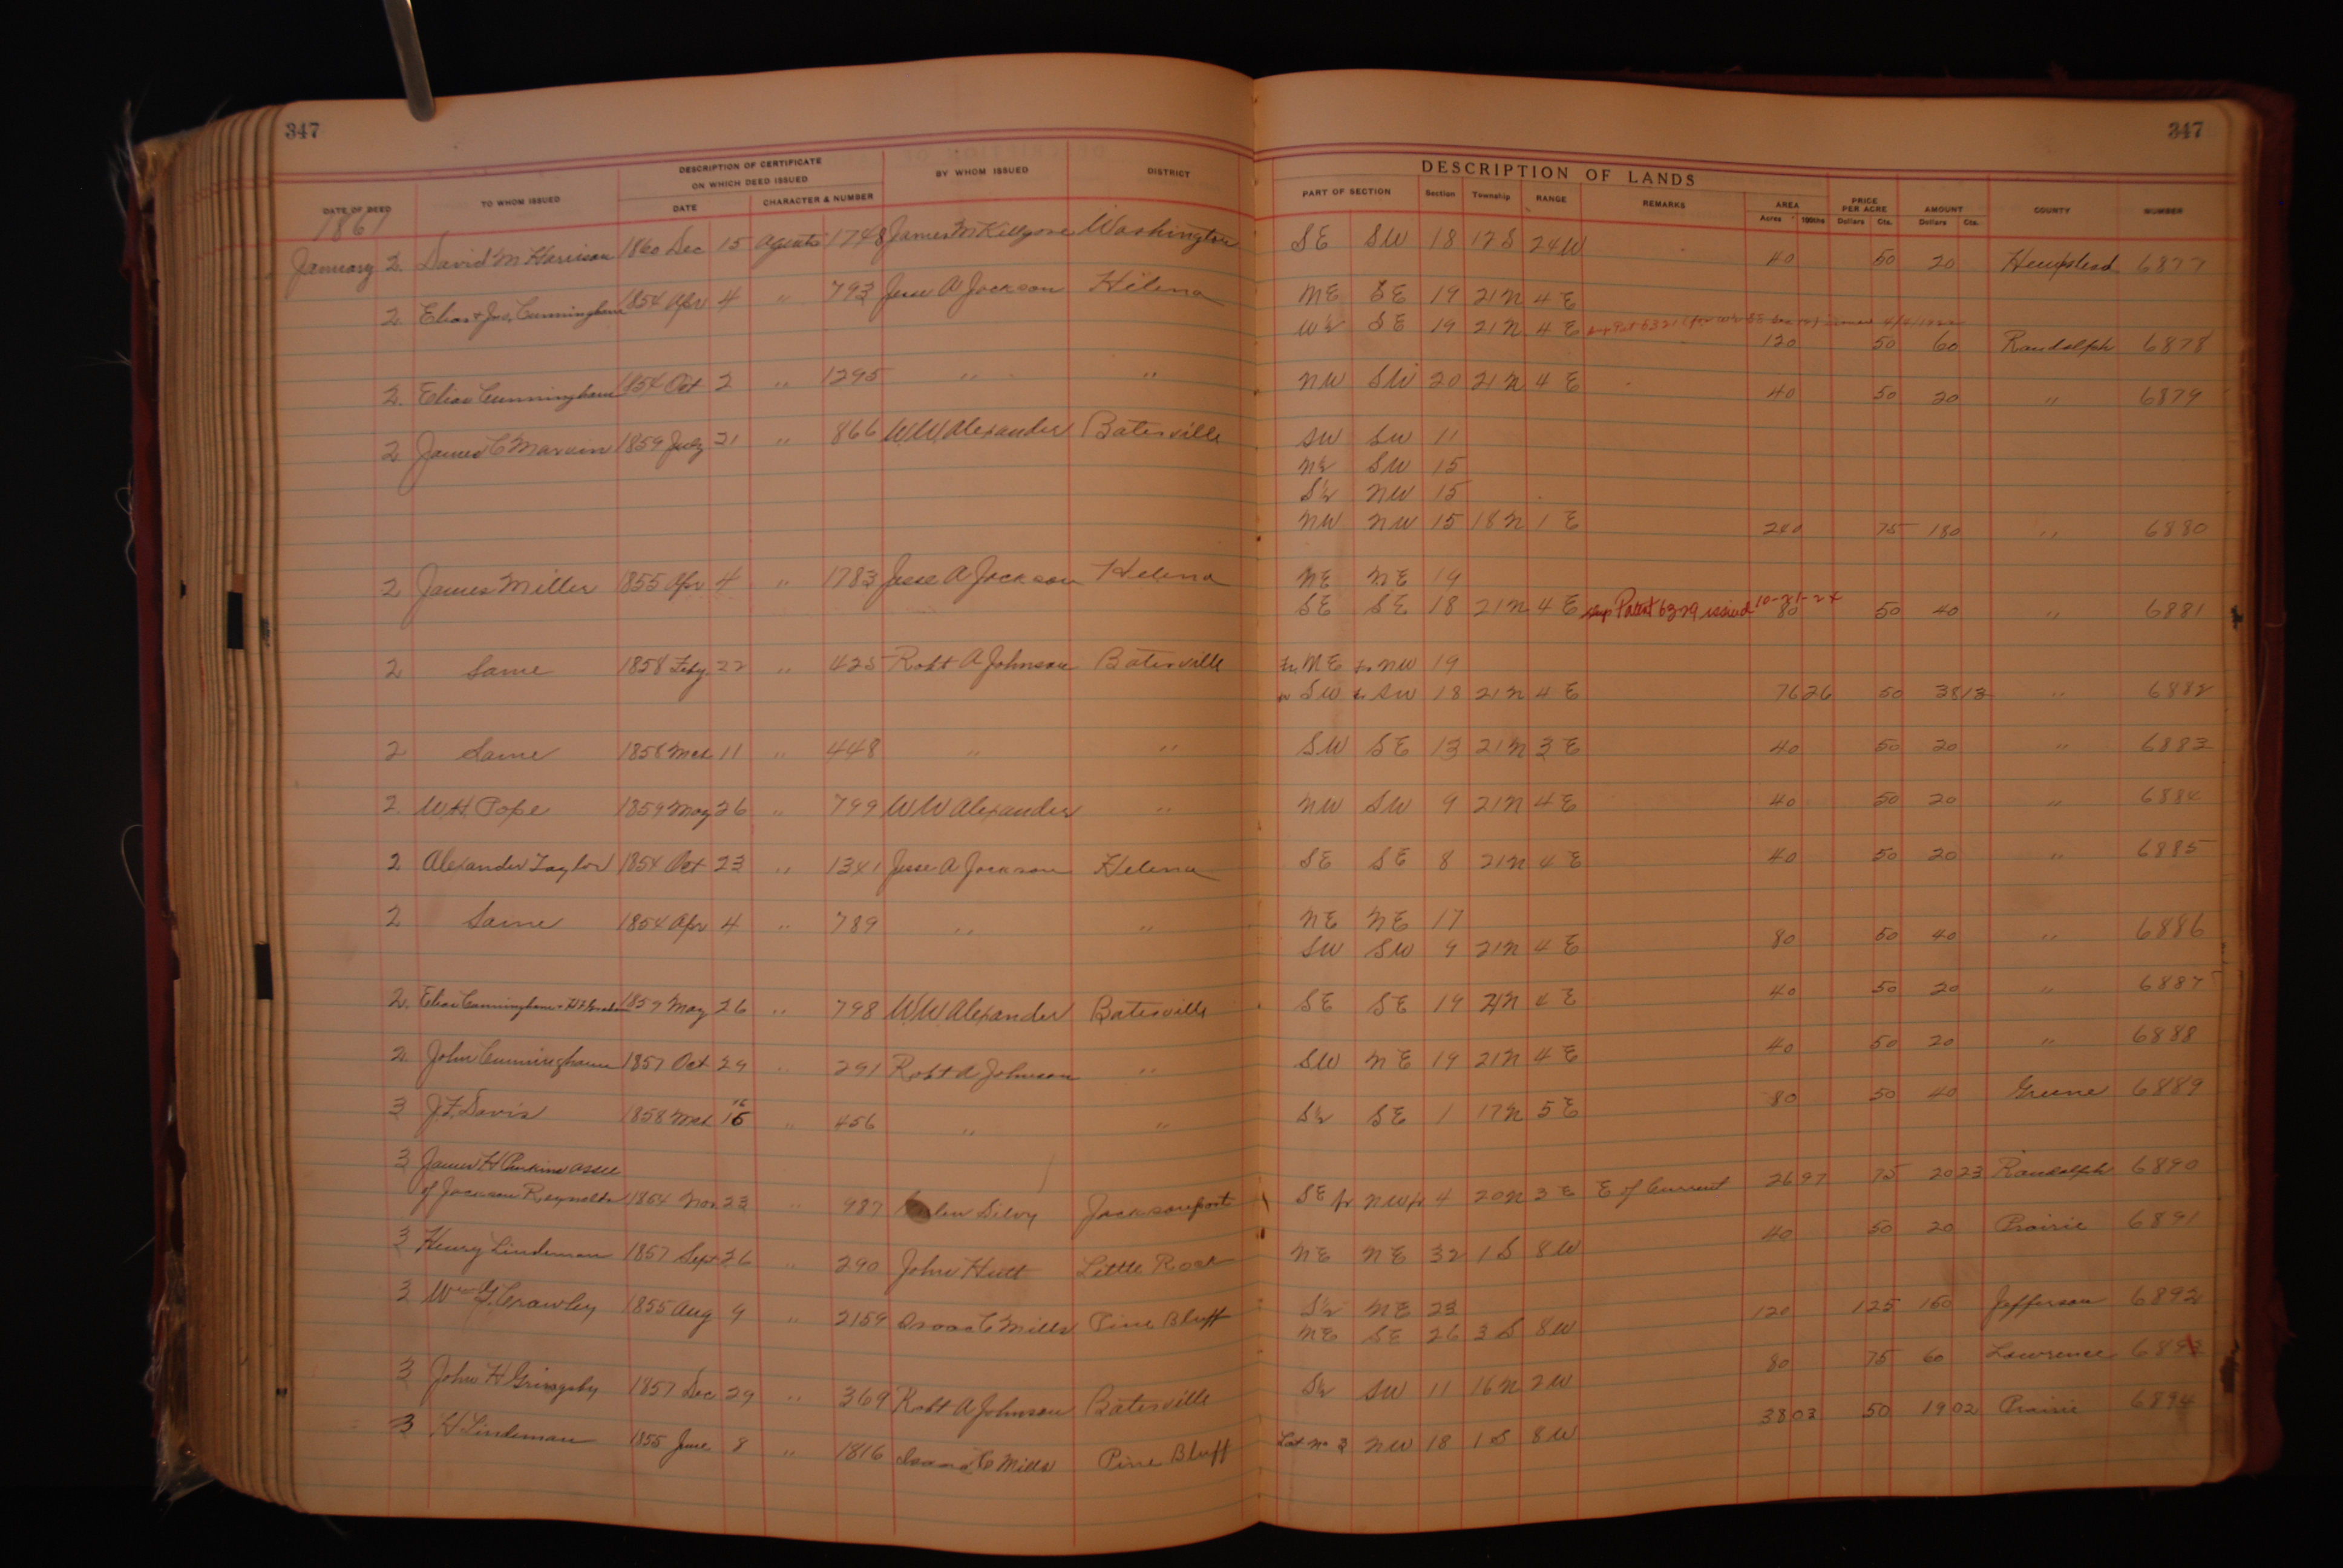 347 347
DESCRIPTION OF LANDS
DATE OF DEED TO WHOM ISSUED DESCRIPTION OF CERTIFICATE ON WHICH DEED ISSUED BY WHOM ISSUED DISTRICT PART OF SECTION Section Township RANGE REMARKS AREA PRICE PER ACRE AMOUNT COUNTY NUMBER
DATE CHARACTER & NUMBER Acres 100ths Dollars Cts. Dollars Cts.
1861
January 2 David M Harrison 1860 Dec 15 Agents 1748 James M Killgore Washington SE SW 18 12 S 24 W 40 50 20 Hempstead 6877
2 Elias & Jno. Cunningham 1854 Apr 4 " 793 Jesse A Jackson Helena NE SE 19 21 N 4 E
W½ SE 19 21 N 4 E 120 50 60 Randolph 6878
2. Elias Cunningham 1854 Oct 2 " 1295 " " NW SW 20 21 N 4 E 40 50 20 " 6879
2 James C 1859 July 21 " 866 W.W. Alexander Batesville SW SW 11
N½ SW 15
S½ NW 15
NW NW 15 18 N 1 E 240 75 180 " 6880
2 James Miller 1855 Apr 4 " 1783 Jesse A Jackson Helena NE NE 19
SE SE 18 21 N 4 E Sup Patent 6329 issued 10-21-24 80 50 40 " 6881
2 Same 1858 Feby. 22 " 425 Robt A Johnson Batesville Fr NE Fr NW 19
Fr SW Fr SW 18 21 N 4 E 76 26 50 38 13 " 6882
2 Same 1858 Mch 11 " 448 " " SW SE 13 21 N 3 E 40 50 20 " 6883
2 W.H. Pope 1859 May 26 " 799 W W Alexander " NW SW 9 21 N 4 E 40 50 20 " 6884
2 Alexander Taylor 1854 Oct 23 " 1341 Jesse A Jackson Helena SE SE 8 21 N 4 E 40 50 20 " 6885
2 Same 1854 Apr 4 " 789 " " NE NE 17
SW SW 9 21 N 4 E 80 50 40 " 6886
2. Elias Cunningham & 1859 May 26 " 798 W.W. Alexander Batesville SE SE 19 21 N 4 E 40 50 20 " 6887
2 John Cunningham 1857 Oct 29 " 291 Robt A Johnson " SW NE 19 21 N 4 E 40 50 20 " 6888
3 J.F. Davis 1858 Mch 16 " 456 " " S½ SE 1 17 N 5 E 80 50 40 Greene 6889
3 James H Perkins assee
of Jackson Reynolds 1864 Nov. 23 " 987 Jacksonport SE fr NW fr 4 20 N 3 E E of Current 26 97 75 20 23 Randolph 6890
3 Henry Lindeman 1857 Sept 26 " 290 John Hutt Little Rock NE NE 32 1 S 8 W 40 50 20 Prairie 6891
3 Wm G. Crawley 1855 Aug 9 " 2159 Isaac C Mills Pine Bluff S½ NE 23
NE SE 26 3 S 8 W 120 125 150 Jefferson 6892
3 John H Grimsley 1857 Dec 29 " 369 Robt A Johnson Batesville S½ SW 11 16 N 2 W 80 75 60 Lawrence 6893
3 H Lindeman 1855 June 8 " 1816 Isaac C Mills Pine Bluff Lot No 2 NW 18 1 S 8 W 38 03 50 19 02 Prairie 6894